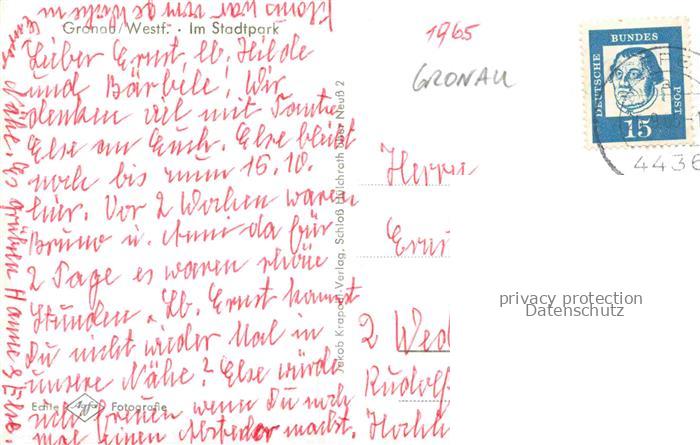 Gronau/Westf. · Im Stadtpark
Lieber Ernst, lb. Hilde
und Bärbele! Wir
denken viel mit Tante
Else an Euch. Else bleibt
noch bis zum 15. 10.
hier. Vor 2 Wochen waren
Bruno u. Anni da für
2 Tage es waren schöne
Stunden. Lb. Ernst kannst
Du nicht wieder Mal in
unsere Nähe? Else würde
sich freuen wenn Du noch
mal einen Abstecher machst.
Nähe. Es grüßen Hanne & Else.
Echte Agfa Fotografie
Jakob Krapohl-Verlag, Schloß Hülchrath über Neuß 2
1965
GRONAU
DEUTSCHE BUNDES POST
15
4436
Herrn
Ernst
2 Wed
Rudolf
Hochh
privacy protection
Datenschutz